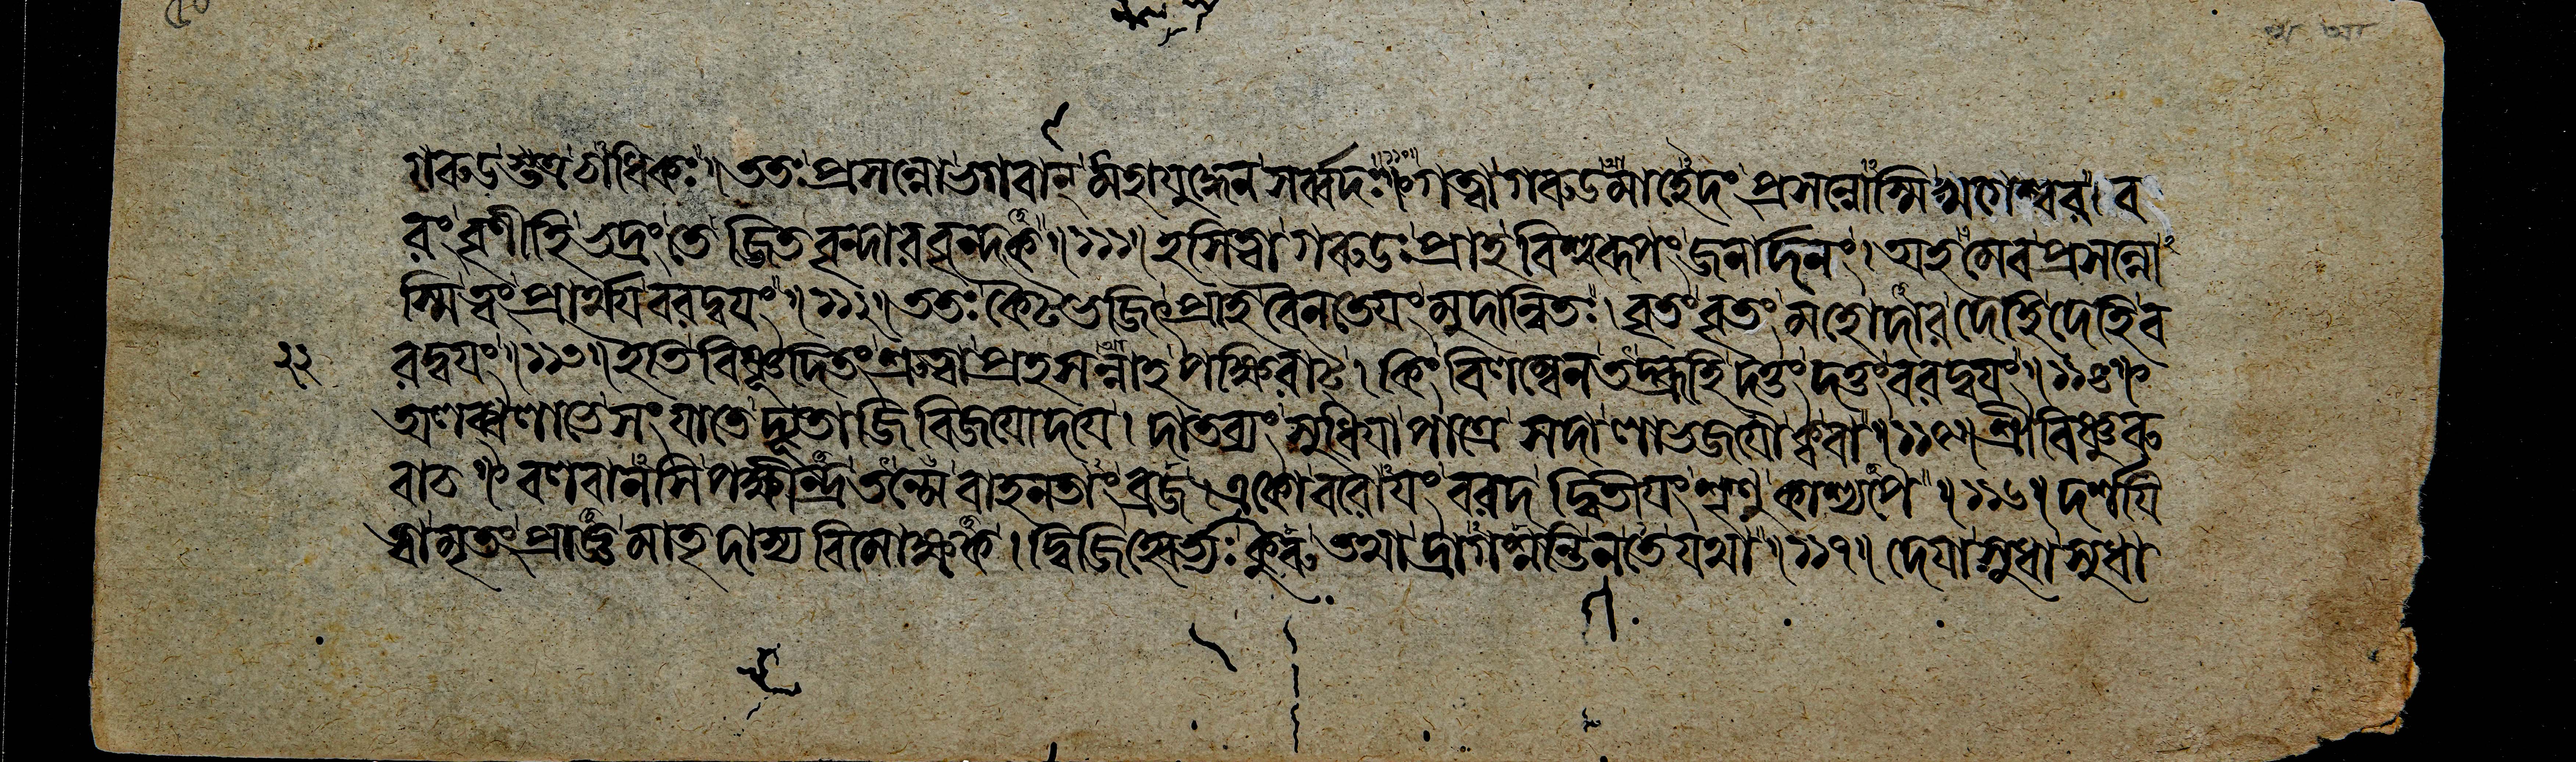 গরুডস্তত্র গাধিকঃ॥ ততঃ প্রসন্নো ভগবান্ মহাযুদ্ধেন সর্ব্বদঃ॥১১০॥ গত্বা গরুডমাহেদং প্রসন্নোস্মি খগেশ্বর। ব
রং বৃণীহি ভদ্রং তে জিতবৃন্দারবৃন্দক॥১১১॥ হসিত্বা গরুডঃ প্রাহ বিশ্বরূপং জনার্দনং। অহমেব প্রসন্নো
স্মি ত্বং প্রার্থয বরদ্বযং॥১১২॥ ততঃ কৈটভজিৎ প্রাহ বৈনতেযং মুদান্বিতঃ। বৃতং বৃতং মহোদার দেহি দেহি ব
২২ রদ্বযং॥১১৩॥ ইতি বিষ্ণূদিতং শ্রুত্বা প্রহসন্নাহ পক্ষিরাট্। কিং বিলম্বেন তদ্ব্রূহি দত্তং দত্তং বরদ্বযং॥১১৪॥
অলব্ধলাভে সংযাতে দ্যূতাজি বিজযোদযে। দাতব্যং সুধিযা পাত্রে সদা লাভজযৌ ক্ব বা॥১১৫॥ শ্রীবিষ্ণুরু
বাচ॥ বলবানসি পক্ষীন্দ্র তন্মে বাহনতাং ব্রজ। একো বরোযং বরদ দ্বিতীযং শৃণু কাশ্যপে॥১১৬॥ দর্শযি
ত্বামৃতং প্রাজ্ঞ মাতৃদাস্যবিমোক্ষক। দ্বিজিহ্বেভ্যঃ কুরু তথা দ্রাগশ্নন্তি ন তে যথা॥১১৭॥ দেযা সুধা সুধা